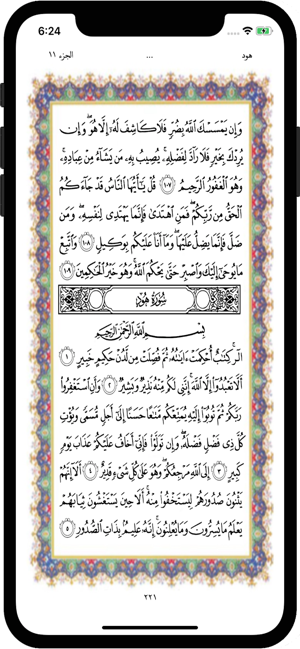 6:24
الجزء ١١ ... هود
وَإِن يَمْسَسْكَ ٱللَّهُ بِضُرٍّ فَلَا كَاشِفَ لَهُۥٓ إِلَّا هُوَ ۖ وَإِن
يُرِدْكَ بِخَيْرٍ فَلَا رَآدَّ لِفَضْلِهِۦ ۚ يُصِيبُ بِهِۦ مَن يَشَآءُ مِنْ عِبَادِهِۦ ۚ
وَهُوَ ٱلْغَفُورُ ٱلرَّحِيمُ ١٠٧ قُلْ يَٰٓأَيُّهَا ٱلنَّاسُ قَدْ جَآءَكُمُ
ٱلْحَقُّ مِن رَّبِّكُمْ ۖ فَمَنِ ٱهْتَدَىٰ فَإِنَّمَا يَهْتَدِى لِنَفْسِهِۦ ۖ وَمَن
ضَلَّ فَإِنَّمَا يَضِلُّ عَلَيْهَا ۖ وَمَآ أَنَا۠ عَلَيْكُم بِوَكِيلٍ ١٠٨ وَٱتَّبِعْ
مَا يُوحَىٰٓ إِلَيْكَ وَٱصْبِرْ حَتَّىٰ يَحْكُمَ ٱللَّهُ ۚ وَهُوَ خَيْرُ ٱلْحَٰكِمِينَ ١٠٩
سُورَةُ هُودٍ
بِسْمِ ٱللَّهِ ٱلرَّحْمَٰنِ ٱلرَّحِيمِ
الٓر ۚ كِتَٰبٌ أُحْكِمَتْ ءَايَٰتُهُۥ ثُمَّ فُصِّلَتْ مِن لَّدُنْ حَكِيمٍ خَبِيرٍ ١
أَلَّا تَعْبُدُوٓا۟ إِلَّا ٱللَّهَ ۚ إِنَّنِى لَكُم مِّنْهُ نَذِيرٌ وَبَشِيرٌ ٢ وَأَنِ ٱسْتَغْفِرُوا۟
رَبَّكُمْ ثُمَّ تُوبُوٓا۟ إِلَيْهِ يُمَتِّعْكُم مَّتَٰعًا حَسَنًا إِلَىٰٓ أَجَلٍ مُّسَمًّى وَيُؤْتِ
كُلَّ ذِى فَضْلٍ فَضْلَهُۥ ۖ وَإِن تَوَلَّوْا۟ فَإِنِّىٓ أَخَافُ عَلَيْكُمْ عَذَابَ يَوْمٍ
كَبِيرٍ ٣ إِلَى ٱللَّهِ مَرْجِعُكُمْ ۖ وَهُوَ عَلَىٰ كُلِّ شَىْءٍ قَدِيرٌ ٤ أَلَآ إِنَّهُمْ
يَثْنُونَ صُدُورَهُمْ لِيَسْتَخْفُوا۟ مِنْهُ ۚ أَلَا حِينَ يَسْتَغْشُونَ ثِيَابَهُمْ
يَعْلَمُ مَا يُسِرُّونَ وَمَا يُعْلِنُونَ ۚ إِنَّهُۥ عَلِيمٌۢ بِذَاتِ ٱلصُّدُورِ ٥
٢٢١